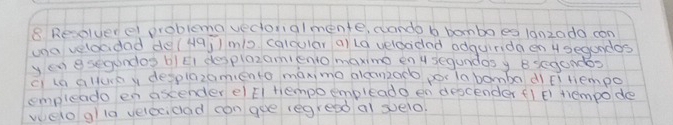 8. Resolver el problema vectorialmente, cuando la bomba es lanzada con
una velocidad de (49j) m/s calcular a) La velocidad adquirida en 4 segundos
y en 8 segundos b) El desplazamiento maximo en 4 segundos y 8 segundos
c) La altura y desplazamiento maximo alcanzado por la bomba. d) El tiempo
empleado en ascender e) El tiempo empleado en descender f) El tiempo de
vuelo g) la velocidad con que regresó al suelo.